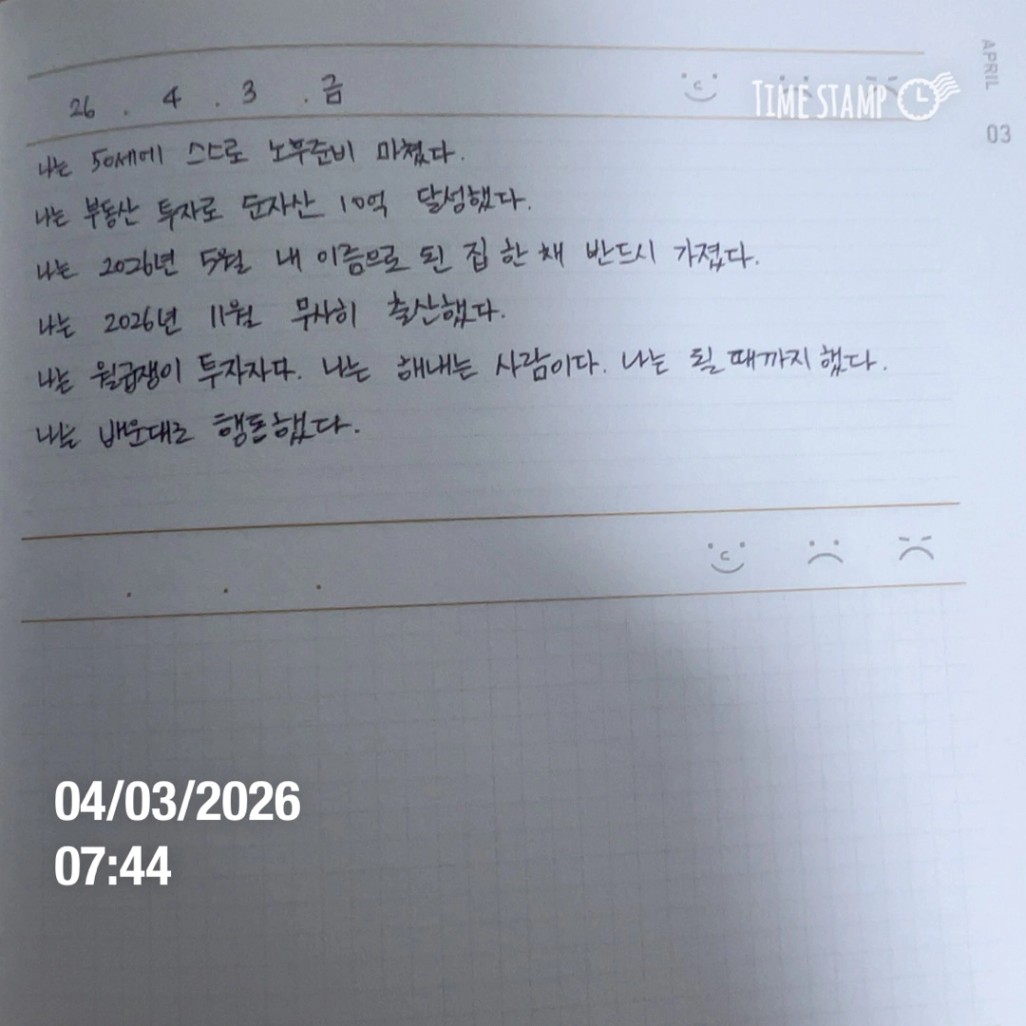 APRIL
03
26 . 4 . 3 . 금
TIME STAMP
나는 50세에 스스로 노후준비 마쳤다.
나는 부동산 투자로 순자산 10억 달성했다.
나는 2026년 5월 내 이름으로 된 집 한 채 반드시 가졌다.
나는 2026년 11월 무사히 출산했다.
나는 월급쟁이 투자자다. 나는 해내는 사람이다. 나는 될 때까지 했다.
나는 배운대로 행동했다.
04/03/2026
07:44